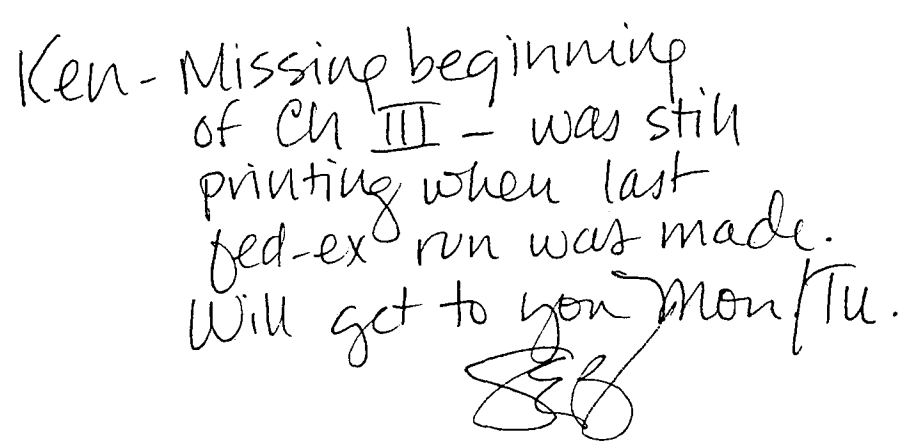 Ken - Missing beginning
of Ch III - was still
printing when last
fed-ex run was made.
Will get to you Mon/Tu.